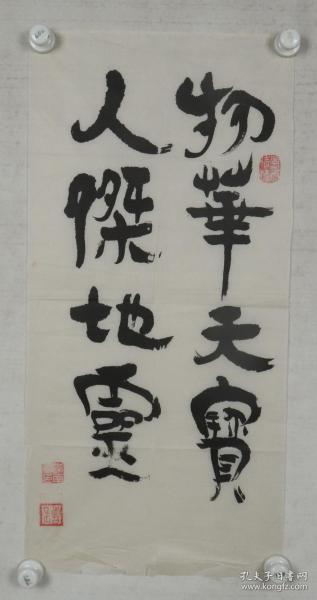 物華天寶
人傑地靈
孔夫子旧书网
www.kongfz.com